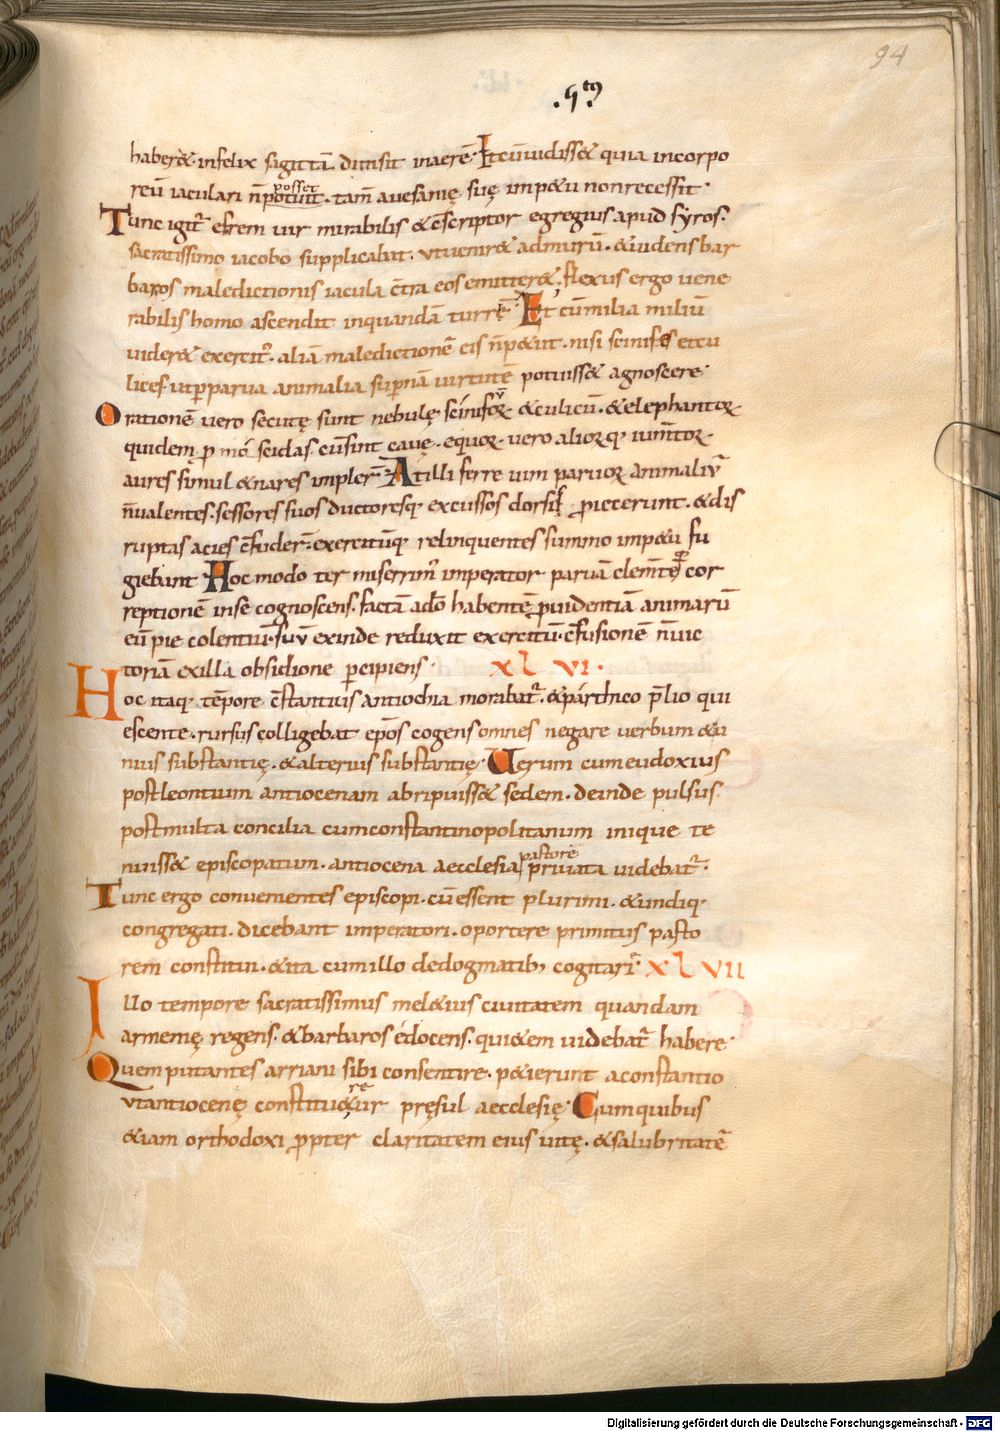 94
.5tꝯ.
haber&. infelix sagittā dimisit inaerē. Et cū uidiss& quia incorpo
posset
reū iaculari n̄ potuit. tam̄ a uesanię suę imp&u non recessit.
Tunc igit̄ efrem uir mirabilis & c̄scriptor egregius apud syros.
sacratissimo iacobo supplicabat. ut uenir& ad murū. & uidens bar
baros maledictionis iacula c̄tra eos emitter&. flexus ergo uene
rabilis homo ascendit inquandā turrē. Et cū milia miliū
uider& exercit;. aliā maledictionē eis n̄ p&iit. nisi scinifes et cu
lices. ut p̱ parua animalia sup̱nā uirtutē potuiss& agnoscere.
Orationē uero secutę sunt nebulę scinifoꝝ & culicū. & elephantoꝝ
quidem, scidas cū sint cauę. equoꝝ uero alioꝝq; iumtoꝝ
aures simul & nares impler̄. At illi ferre uim paruoꝝ animaliū
n̄ ualentes. sessores suos ductoresq; excussos dorsis proiecerunt. & dis
ruptis acies c̄fuder̄. exercitūq; relinquentes summo imp&u fu
giebant. Hoc modo ter miserrim; imperator paruā clem̄tē cor
reptionē inse cognoscens. factā a dō habentē ꝓuidentiā animarū
eū pie colentiū. suū exinde reduxit exercitū. c̄fusionē n̄ uic
toriā ex illa obsidione p̱cipiens. XL VI.
Hoc itaq; tēpore c̄stantius antiochia morabat̄. & parthico p̄lio qui
escente. rursus colligebat ep̄os cogens omnes negare uerbum &u
nius substantię. & alterius substantię. Uerum cum eudoxius
post leontium antiocenam abripuiss& sedem. deinde pulsus
post multa concilia cum constantinopolitanum inique te
pastore
nuiss& episcopatum. antiocena aecclesia priuata uidebat̄.
Tunc ergo conuenientes episcopi. cū essent plurimi. & undiq;
congregati. dicebant imperatori. oportere primitus pasto
rem constitui. & ita cum illo de dogmatib; cogitari. XL VII
Illo tempore sacratissimus mel&ius ciuitatem quandam
armenię regens. & barbaros edocens. qui&em uidebat̄ habere.
Quem putantes arriani sibi consentire. p&ierunt a constantio
re
ut antiocenę constitu&ur pręsul aecclesię. Cum quibus
&iam orthodoxi ꝓpter claritatem eius uitę. & salubritatē
Digitalisierung gefördert durch die Deutsche Forschungsgemeinschaft - DFG